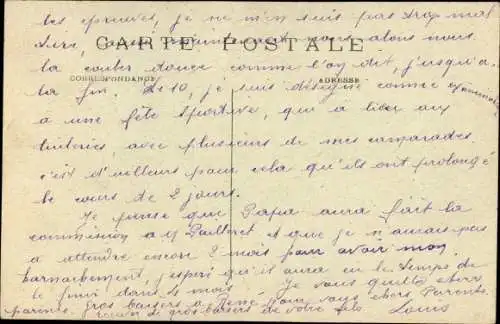 les épreuves, je ne m'en suis pas trop mal
tiré, maintenant nous allons nous
CARTE POSTALE
la couler douce comme l'on dit, jusqu'à
CORRESPONDANCE
ADRESSE
la fin. Le 10, je suis désigné comme
à une fête sportive, qui a lieu aux
tuileries, avec plusieurs de mes camarades
c'est d'ailleurs pour cela qu'ils ont prolongé
le cours de 2 jours.
Je pense que Papa aura fait la
commission à M et que je n'aurais pas
à attendre encore 2 mois pour avoir mon
harnachement, j'espère qu'il aura eu le temps de
le finir dans le mois Je vous quitte chers
parents. Gros baisers à pour vous chers Parents
de gros baisers de votre fils Louis